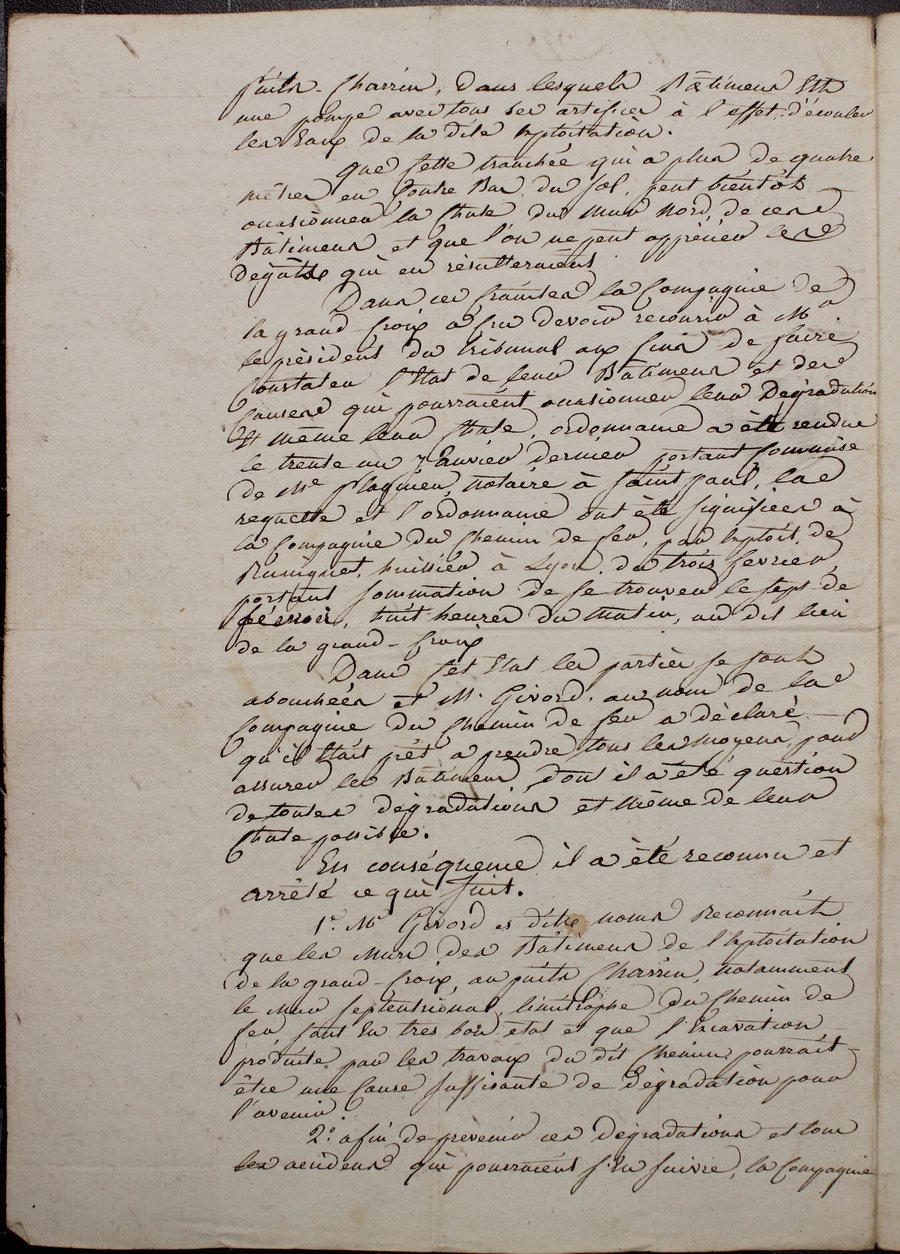 Puits Charrin, dans lesquels Bâtimens Est
une pompe avec tous ses artifices à l'effet d'écouler
les Eaux de la dite Exploitation.
que Cette tranchée qui a plus de quatre
mètres en Contre Bas du Sol, peut bientôt
ocasionner la Chute du Mur Nord, de ces
Bâtimens et que l'on ne peut apprécier les
Dégats qui en résulteraient.
Dans ces Craintes la Compagnie de
la grand-Croix a Cru devoir recourir à Mr
le président du tribunal aux fins de faire
Constater l'Etat de leur Bâtimens et des
Causes qui pourraient ocasionner leur Dégradation
Et même leur Chute, ordonnance a été rendue
le trente un Janvier dernier portant Commise
de Me Flaquier, Notaire à Saint paul, la
requette et l'ordonnance ont été signifiées à
la Compagnie du Chemin de fer, par Exploit de
huissier à Lyon, du trois fevrier,
portant Sommation de se trouver le sept de
fevrier, huit heures du Matin, au dit lieu
de la grand-Croix
Dans Cet Etat les parties se sont
abouchées et M. Givord, au nom de la
Compagnie du Chemin de fer a déclaré
qu'il Etait prêt a prendre tous les Moyens, pour
assurer les Bâtimens dont il a été question
de toutes dégradations et même de leur
Chute possible.
En conséquence il a été reconnu et
arrêté ce qui Suit.
1° Mr Givord es dits noms Reconnait
que les Murs des Bâtimens de l'Exploitation
de la grand-Croix, au puits Charrin, notamment
le Mur Septentrional, limitrophe du Chemin de
fer, sont En tres bon état et que l'Excavation
produite par les travaux du dit Chemin, pourrait
être une Cause Suffisante de dégradation pour
l'avenir.
2° afin de prévenir ces dégradations et tous
les accidens qui pourraient s'En Suivre, la Compagnie